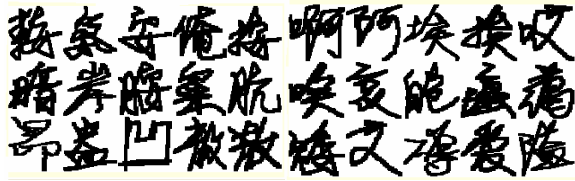 鞍氨安俺按啊阿埃挨哎
暗岸胺案肮唉哀皑癌蔼
昂盎凹敖熬矮艾碍爱隘